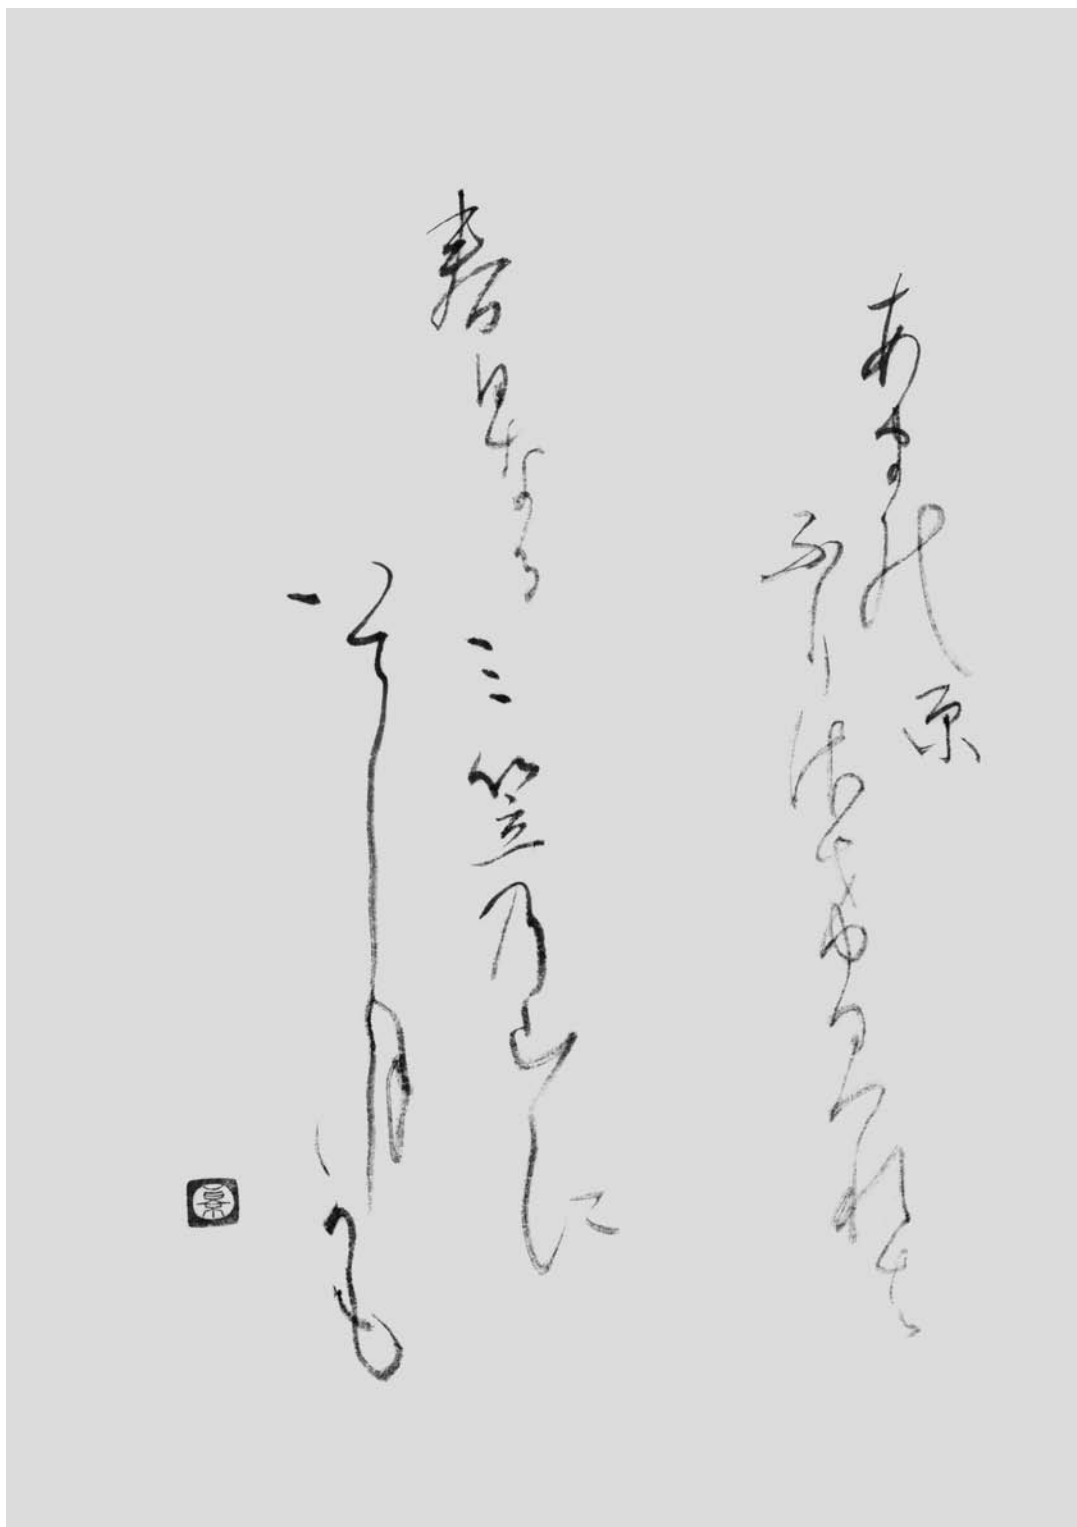 あまの原
ふりさけみれは
春日なる
三笠乃山に
いてし月かも
景